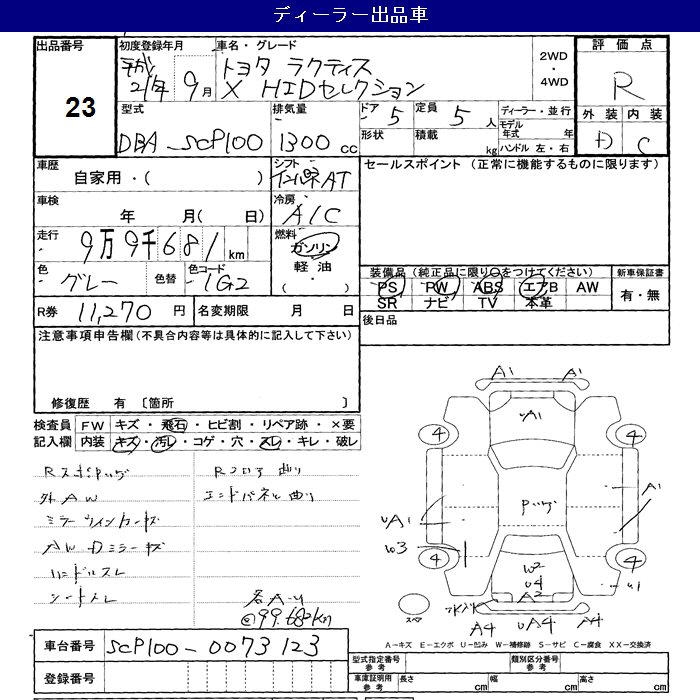 ディーラー出品車
出品番号
23
初度登録年月
平成
21年 9月
車名・グレード
トヨタ ラクティス
X HIDセレクション
2WD
・
4WD
評価点
R
外装 内装
D C
型式
DBA-SCP100
排気量
1300 cc
ドア 5
定員 5人
形状
積載 kg
ディーラー・並行
モデル年式 年
ハンドル 左・右
車歴
自家用・( )
シフト
インパネAT
車検
年 月( 日)
冷房
A/C
走行
9万9千681km
燃料
ガソリン
軽油
( ・ )
色
グレー
色替
色コード
1G2
R券 11,270 円
名変期限 月 日
セールスポイント (正常に機能するものに限ります)
装備品(純正品に限り○をつけてください)
PS PW ABS エアB AW
SR ナビ TV 本革
新車保証書
有・無
後日品
注意事項申告欄(不具合内容等は具体的に記入して下さい)
修復歴 有 〔箇所 〕
検査員記入欄
FW キズ・飛石・ヒビ割・リペア跡・×要
内装 キズ・汚レ・コゲ・穴・スレ・キレ・破レ
外AW
ミラーウインカーキズ
AW-Dミラーキズ
ハンドルスレ
シートスレ
Rフロア曲り
エンドパネル曲り
@99.682km
A1 A1
UA1
4 4
A1
UA1
W3
4 4
W2
U4
A2
U1
A4 UA4 A4
スペア
A−キズ E−エクボ U−凹み W−補修跡 S−サビ C−腐食 XX−交換済
車台番号 SCP100-0073123
登録番号
型式指定番号 参考
類別区分番号 参考
車庫証明用 参考
長さ cm 幅 cm 高さ cm